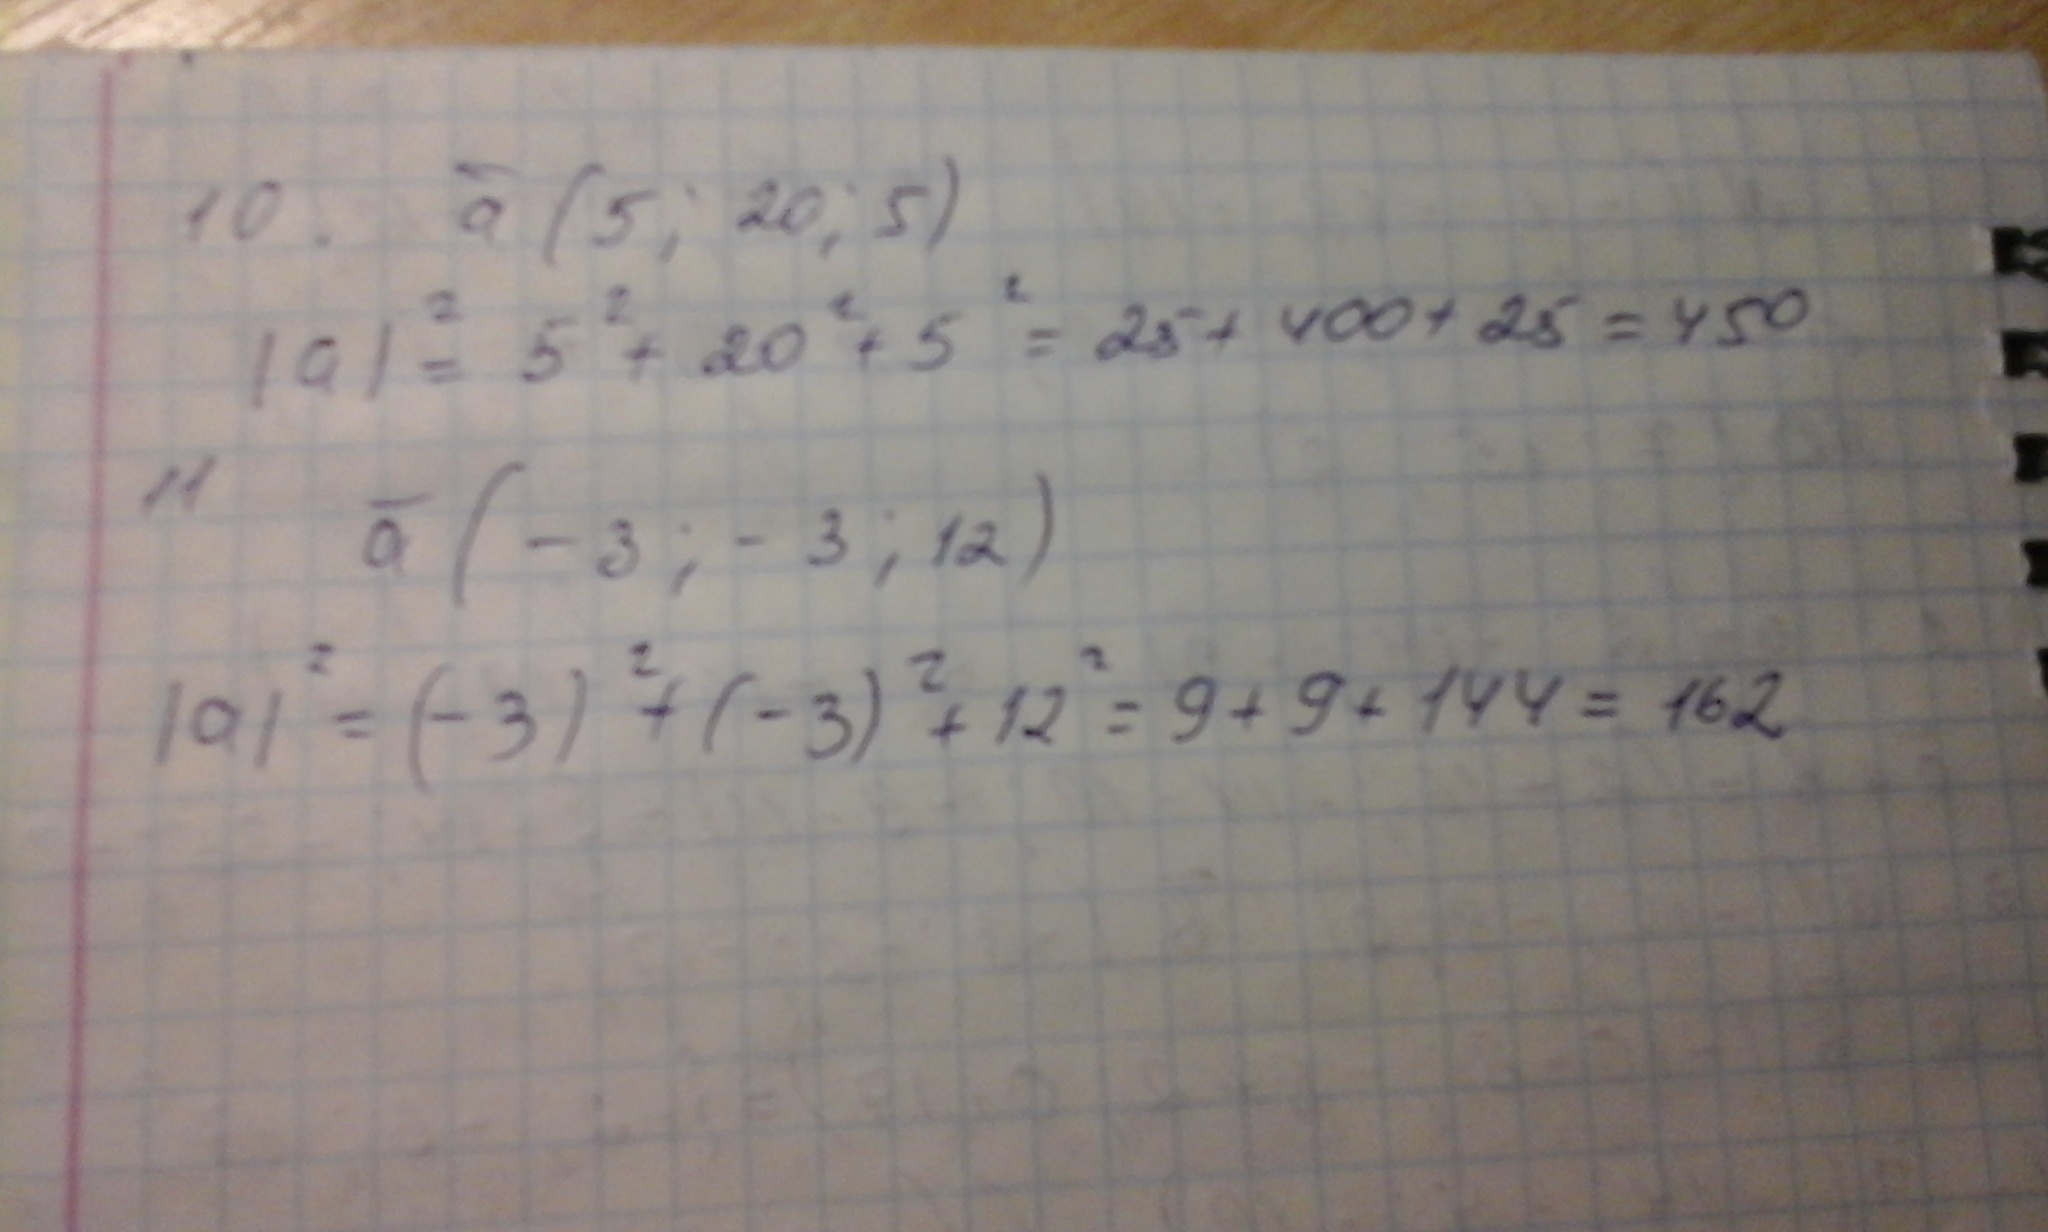 10. a̅ (5; 20; 5)
|a|² = 5² + 20² + 5² = 25 + 400 + 25 = 450
11 a̅ (-3; -3; 12)
|a|² = (-3)² + (-3)² + 12² = 9 + 9 + 144 = 162